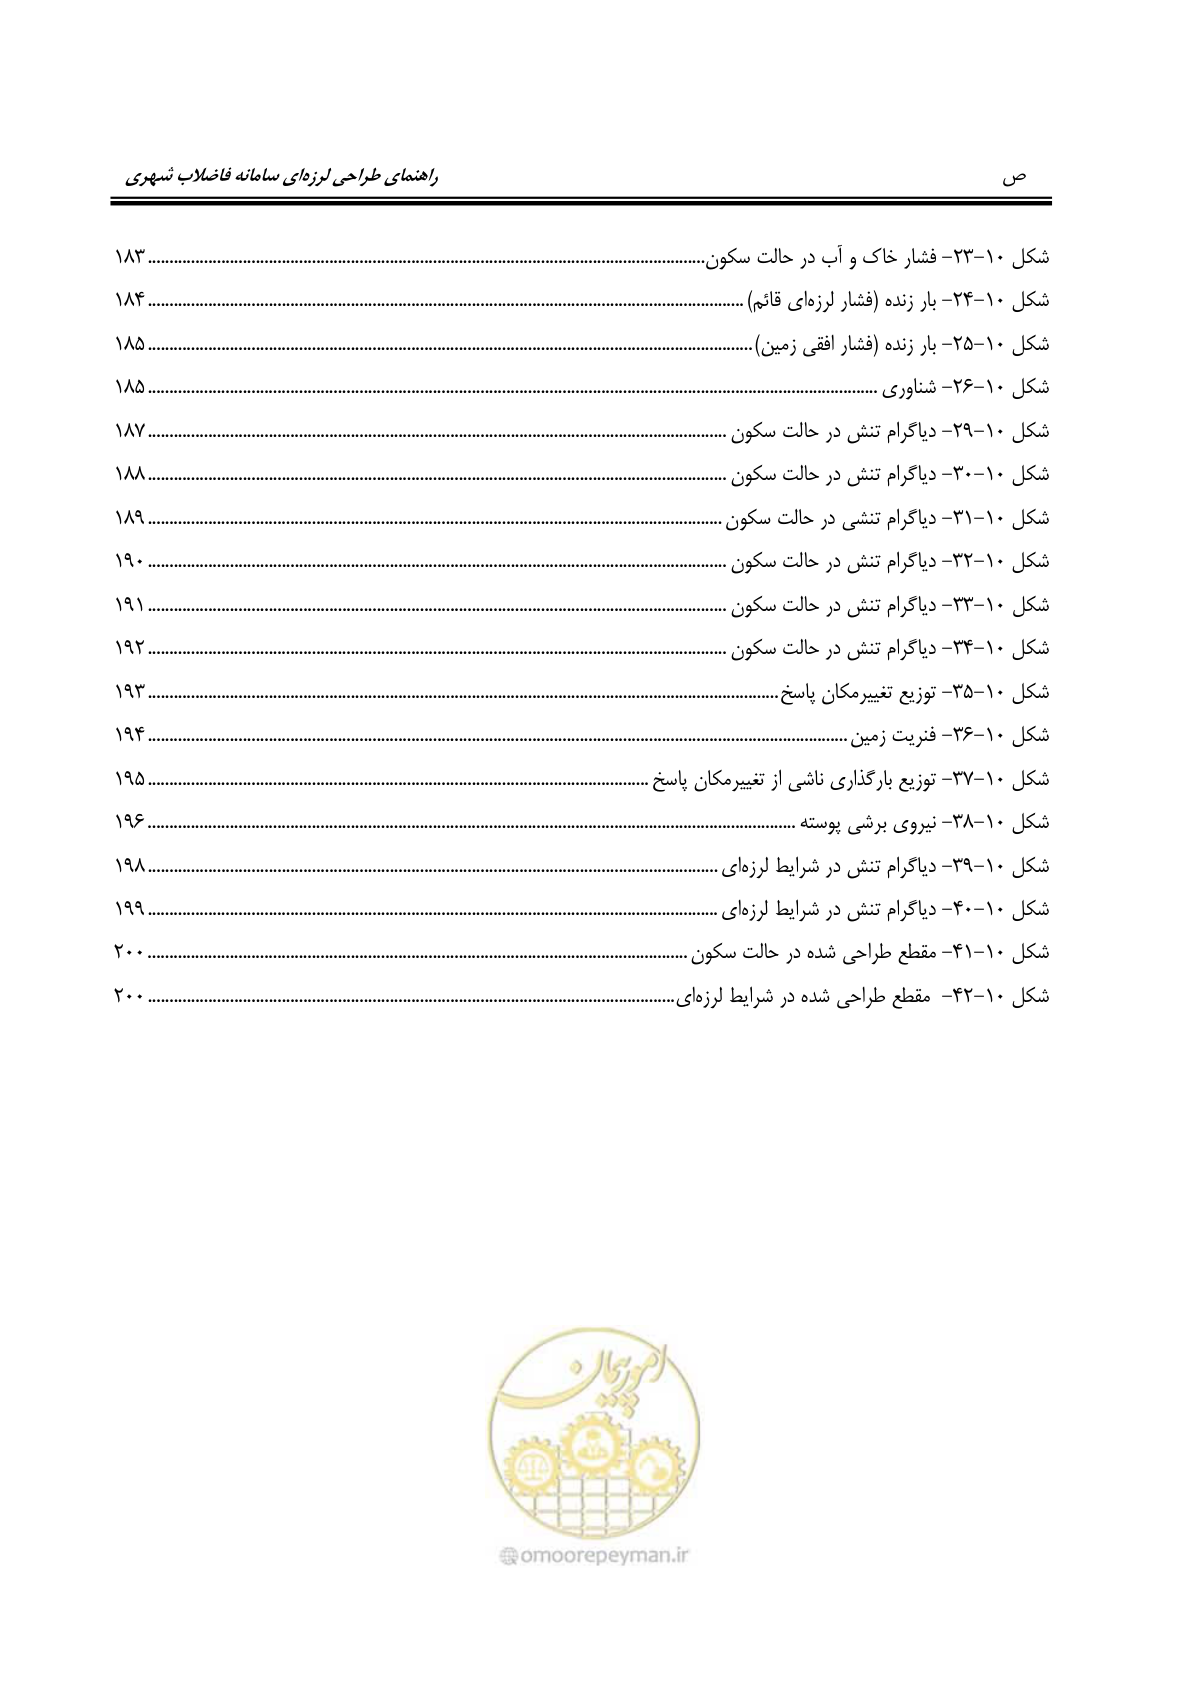 ص
راهنمای طراحی لرزه‌ای سامانه فاضلاب شهری
شکل ۱۰-۲۳- فشار خاک و آب در حالت سکون ۱۸۳
شکل ۱۰-۲۴- بار زنده (فشار لرزه‌ای قائم) ۱۸۴
شکل ۱۰-۲۵- بار زنده (فشار افقی زمین) ۱۸۵
شکل ۱۰-۲۶- شناوری ۱۸۵
شکل ۱۰-۲۹- دیاگرام تنش در حالت سکون ۱۸۷
شکل ۱۰-۳۰- دیاگرام تنش در حالت سکون ۱۸۸
شکل ۱۰-۳۱- دیاگرام تنشی در حالت سکون ۱۸۹
شکل ۱۰-۳۲- دیاگرام تنش در حالت سکون ۱۹۰
شکل ۱۰-۳۳- دیاگرام تنش در حالت سکون ۱۹۱
شکل ۱۰-۳۴- دیاگرام تنش در حالت سکون ۱۹۲
شکل ۱۰-۳۵- توزیع تغییرمکان پاسخ ۱۹۳
شکل ۱۰-۳۶- فنریت زمین ۱۹۴
شکل ۱۰-۳۷- توزیع بارگذاری ناشی از تغییرمکان پاسخ ۱۹۵
شکل ۱۰-۳۸- نیروی برشی پوسته ۱۹۶
شکل ۱۰-۳۹- دیاگرام تنش در شرایط لرزه‌ای ۱۹۸
شکل ۱۰-۴۰- دیاگرام تنش در شرایط لرزه‌ای ۱۹۹
شکل ۱۰-۴۱- مقطع طراحی شده در حالت سکون ۲۰۰
شکل ۱۰-۴۲- مقطع طراحی شده در شرایط لرزه‌ای ۲۰۰
امور پیمان
@omoorepeyman.ir